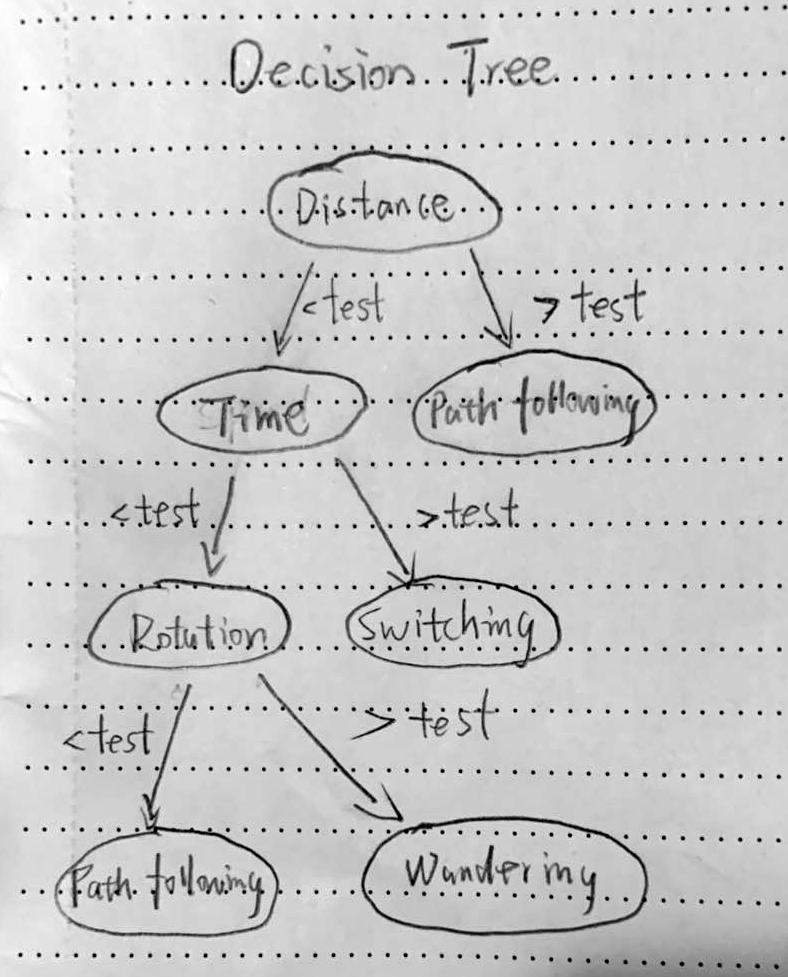 Decision Tree
Distance
<test >test
Time Path following
<test >test
Rotution Switching
<test >test
Path following Wandering